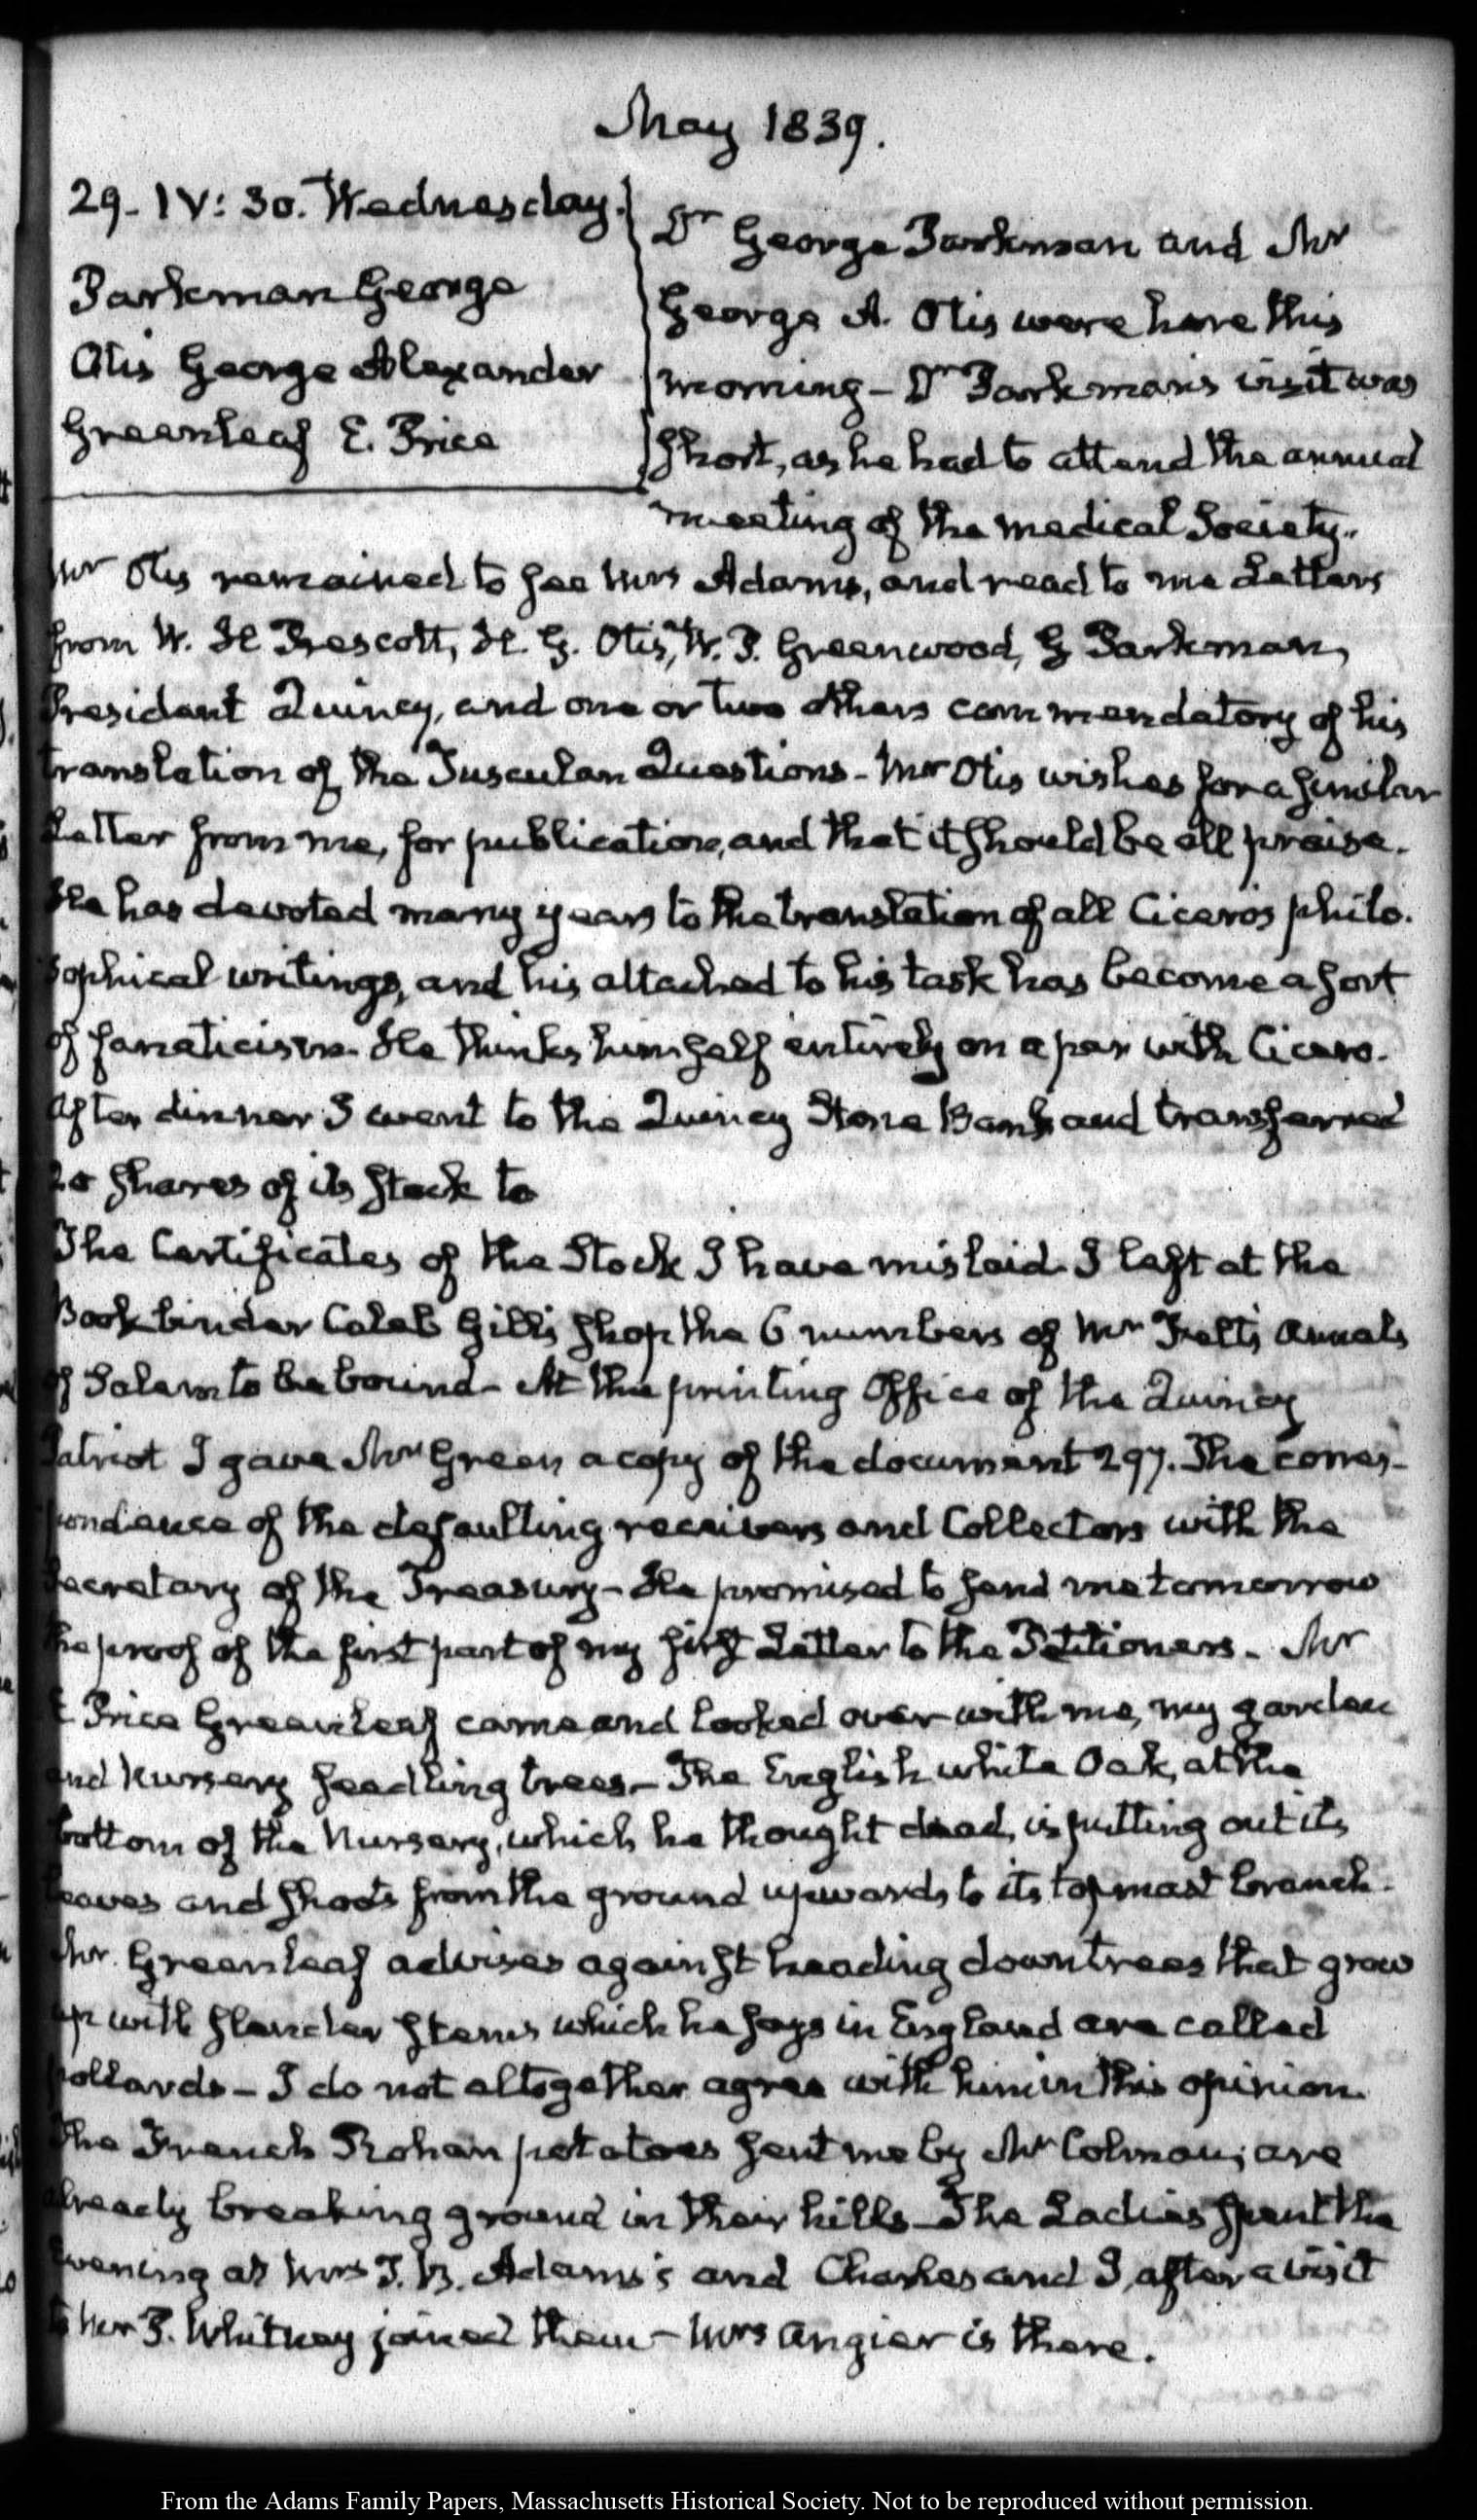 May 1839.
29. IV: 30. Wednesday.
Parkman George
Otis George Alexander
Greenleaf E. Price
Dr George Parkman and Mr
George A. Otis were here this
morning — Dr Parkman's visit was
short, as he had to attend the annual
meeting of the medical Society.
Mr Otis remained to see Mrs Adams, and read to me Letters
from W. H Prescott, H. G. Otis, W. P. Greenwood, G Parkman,
President Quincy, and one or two others commendatory of his
translation of the Tusculan Questions — Mr Otis wishes for a similar
Letter from me, for publication, and that it should be all praise.
He has devoted many years to the translation of all Cicero's philo-
sophical writings, and his attached to his task has become a sort
of fanaticism. He thinks himself entirely on a par with Cicero.
After dinner I went to the Quincy Stone Bank and transferred
20 shares of its stock to
The Certificates of the Stock I have mislaid. I left at the
Bookbinder Caleb Gill's shop the 6 numbers of Mr Felt's Annals
of Salem to be bound — At the printing Office of the Quincy
Patriot I gave Mr Green a copy of the document 297. The corres-
pondence of the defaulting receivers and Collectors with the
Secretary of the Treasury — He promised to send me tomorrow
the proof of the first part of my first Letter to the Petitioners. Mr
E Price Greenleaf came and looked over with me, my garden
and Nursery seedling trees — The English white Oak, at the
bottom of the Nursery, which he thought dead, is putting out its
leaves and shoots from the ground upwards to its topmast branch.
Mr Greenleaf advises against heading down trees that grow
up with slender stems which he says in England are called
pollards — I do not altogether agree with him in this opinion.
The French Rohan potatoes sent me by Mr Colman, are
already breaking ground in their hills — The Ladies spent the
evening at Mrs T. B. Adams's and Charles and I, after a visit
to Mr T. Whitney joined them — Mrs Angier is there.
From the Adams Family Papers, Massachusetts Historical Society. Not to be reproduced without permission.